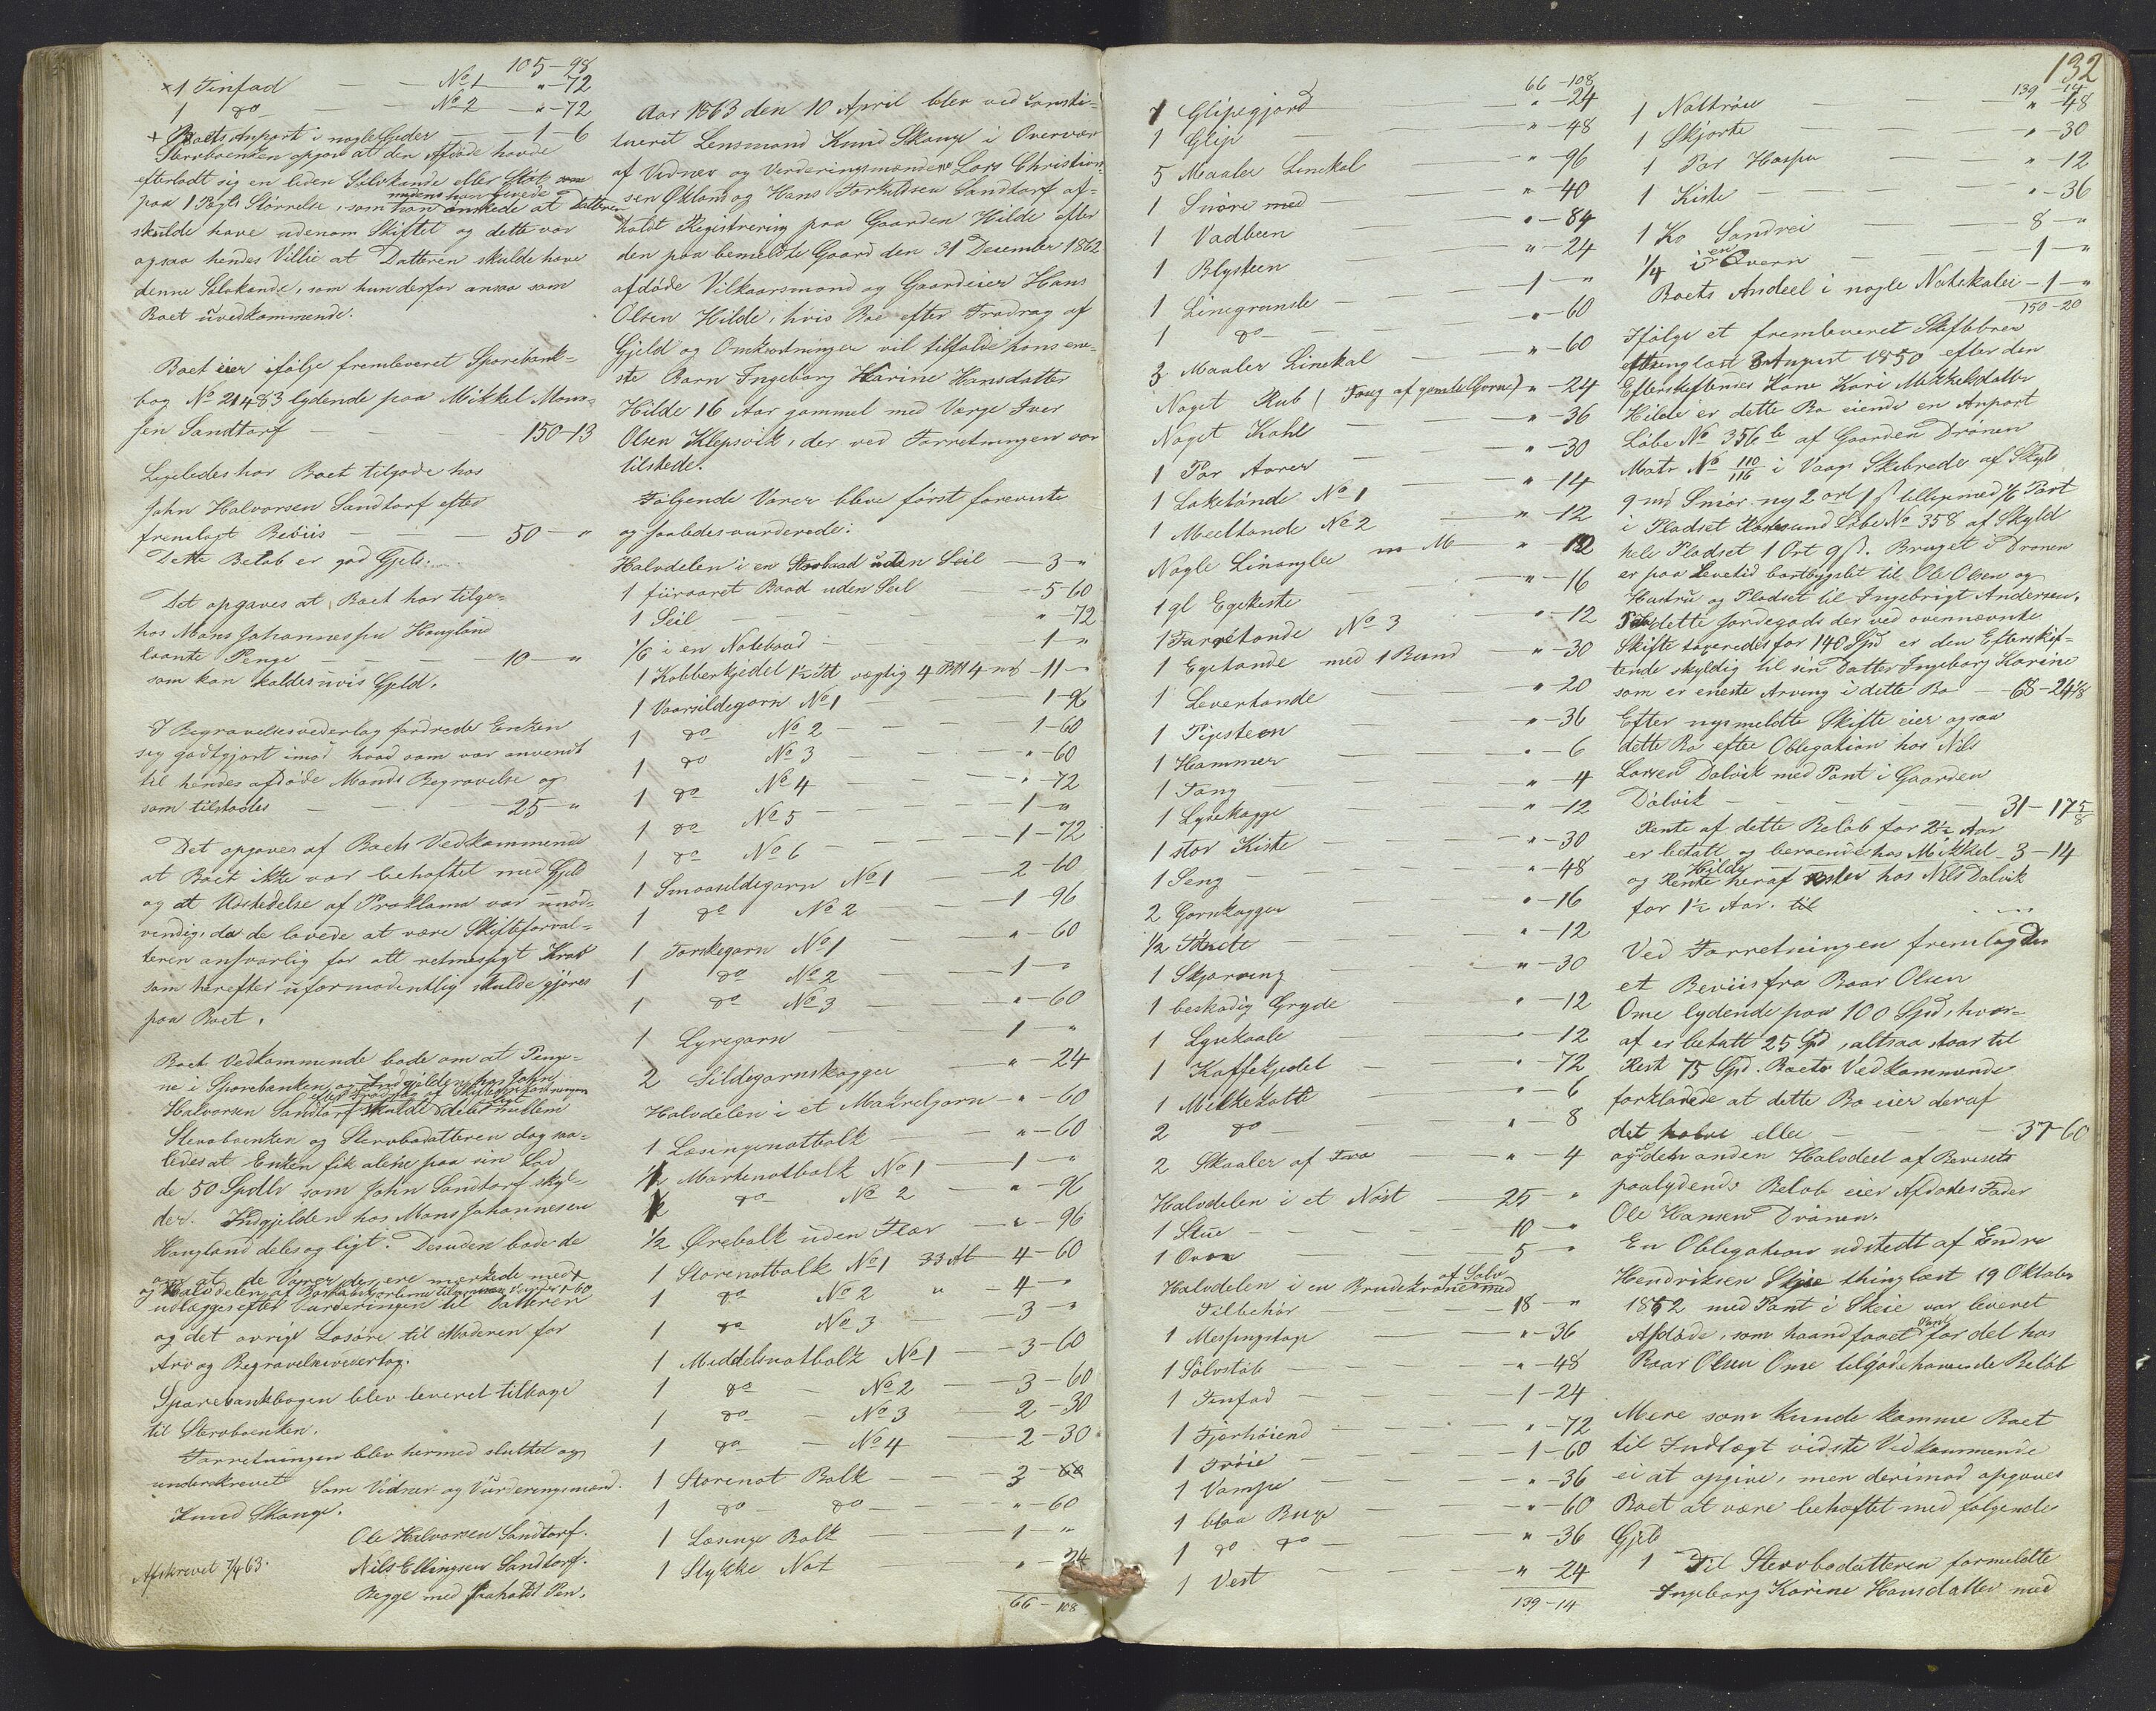 105-98
×1 Tinfad — — No 1 — " - 72
1 do — — No 2 — " - 72
× Boets Anpart i nogle Huder — — 1 - 6
Stervboenken opgav at den Afdöde havde
efterladt sig en liden Sölvkande eller Stob som
paa 1 Pægls Störrelse, som han medens han levede önskede at Datteren
skulde have udenom Skiftet og dette var
ogsaa hendes Villie at Datteren skulde have
denne Sölvkande, som hun derfor ansaa som
Boet uvedkommende.
Boet eier ifölge fremleveret Sparebank-
bog No 21483 lydende paa Mikkel Mons-
sen Sandtorf — — 150-13
Ligeledes har Boet tilgode hos
John Halvorsen Sandtorf efter
fremlagt Beviis — — 50 — "
Dette Belöb er god Gjeld.
Det opgaves at Boet har tilgo-
hos Mons Johannessen Haugland
laante Penge — — 10 — "
som kan kaldes uvis Gjeld.
I Begravelsesvederlag fordrede Enken
sig godtgjort imod hvad som var anvendt
til hendes afdöde Mands Begravelse og
som tilstodes — — 25 - "
Det opgaves af Boets Vedkommende
at Boet ikke var behæftet med Gjeld
og at Udstedelse af Proklama var unöd-
vendig, da de lovede at være Skifteforval-
teren ansvarlig for alt retmæssigt Krav
som herefter uformodentlig skulde gjöres
paa Boet.
Boets Vedkommende bade om at Penge-
ne i Sparebanken og Indgjelden hos John
Halvorsen Sandtorf efter Fradrag af Skifteomkostningen skulde deles mellem
Stervboenken og Stervbodatteren dog saa-
ledes at Enken fik alene paa sin Lod
de 50 Spdlr som John Sandtorf skyl-
der. Indgjelden hos Mons Johannesen
Haugland deles og ligt. Desuden bade de
om at de Varer der ere mærkede med ×
og Halvdelen af
udlægges efter Vurderingen til Datteren
og det övrige Lösöre til Moderen for
Arv og Begravelsesvederlag.
Sparebankbogen blev leveret tilbage
til Stervboenken.
Forretningen blev hermed sluttet og
underskrevet Som Vidner og Vurderingsmænd.
Knud Skauge.
Ole Halvorsen Sandtorf.
Afskrevet 7/4 63. Nils Ellingsen Sandtorf.
Begge med paaholdt Pen.
Aar 1863 den 10 April blev ved consti-
tueret Lensmand Knud Skauge i Overvær
af Vidner og Vurderingsmændene Lars Christian-
senÖkland og Hans Torkildsen Sandtorf af-
holdt Registrering paa Gaarden Hilde efter
den paa bemeldte Gaard den 31 December 1862
afdöde Vilkaarsmand og Gaardeier Hans
Olsen Hilde, hvis Bo efter Fradrag af
Gjeld og Omkostninger vil tilfalde hans ene-
ste Barn Ingeborg Karine Hansdatter
Hilde 16 Aar gammel med Værge Iver
Olsen Klepsvik, der ved Forretningen var
tilstede.
Fölgende Varer bleve först foreviste
og saaledes vurderede:
Halvdelen i en Storbaad uden Seil — 3 - "
1 fiiraaret Baad uden Seil — 5-60
1 Seil — — " - 72
1/6 i en Notebaad — 1 - "
1 Kobberkjedel 1½ Td vægtig 4 4 — 11 - "
1 Vaarsildegarn No 1 — 1-96
1 do No 2 — 1-60
1 do No 3 — " - 60
1 do No 4 — " - 72
1 do No 5 — 1 - "
1 do No 6 — 1-72
1 Smaasildegarn No 1 — 2-60
1 do No 2 — 1-96
1 Torskegarn No 1 — " - 60
1 do No 2 — 1 - "
1 do No 3 — " - 60
1 Lyregarn — 1 "
2 Sildegarnskagger — " - 24
Halvdelen i et Makrelgarn — " - 60
1 Læsingenotbolk — " - 60
½ Mortenotbolk No 1 — 1 - "
½ do No 2 — " - 96
½ Örebolk uden Flaa — " - 96
1 Storenotbolk No 1 33 Al — 4-60
1 do No 2 " — 4 - "
1 do No 3 — 3 - "
1 Middelsnotbolk No 1 — 3-60
1 do — No 2 — 3-60
1 do — No 3 — 2-30
1 do — No 4 — 2-30
1 Storenot Bolk — 3 - 60
1 do — do — " - 60
1 Læsinge Bolk — 1 - "
1 Stykke Not — " - 24
66 - 108
66 - 108
1 Glipegjord — " - 24
1 Glip — " - 48
5 Maaler Linekal — " - 96
1 Snöre med — " - 40
1 Vadbeen — " - 84
1 Blysteen — " - 24
1 Linegrunde — 1 - "
1 do — " - 60
3 Maaler Linekal — " - 60
Noget Rub (Toug af gamle Garne) " - 24
Noget Kohl — " - 36
1 Par Aarer — " - 30
1 Laketönde No 1 — " - 14
1 Meeltönde No 2 — " - 12
Nogle Linangler m M — " - 12
1 gl Egekiste — " - 16
1 Farvetönde No 3 — " - 12
1 Egetönde med 1 Bund — " - 30
1 Levertönde — " - 20
1 Pigsteen — " - 36
1 Hammer — " - 6
1 Tang — " - 4
1 Lysekagge — " - 12
1 stor Kiste — " - 30
1 Seng — " - 48
2 Gornkagger — " - 16
½ Tönde — " - 12
1 Skjæreeng — " - 30
1 beskadig Gryde — " - 12
1 Lysekaale — " - 12
1 Kaffekjedel — " - 72
1 Melkekolle — " - 6
2 do — " - 8
2 Skaaler af Træ — " - 4
Halvdelen i et Nöst — 25 - "
1 Stue — 10 - "
1 Ovn — 5 - "
Halvdelen i en Brudekrone af Sölv med
Tilbehör — 18 - "
1 Messingstage — " - 36
1 Sölvstöb — " - 48
1 Tinfad — 1-24
1 Fjærhöiend — " - 72
1 Tröie — 1-60
1 Vampe — " - 36
1 blaa Buxe — " - 60
1 do do — " - 36
1 Vest — " - 24
139-14
132
139-14
1 Nattröie — " - 48
1 Skjorte — " - 30
1 Par Hosser — " - 12
1 Kiste — " - 36
1 Ko Sandrei — 8 - "
¼ i en Qvern — 1 - "
Boets Andeel i nogle Notekaler — 1 - "
150-20
Ifölge et fremleveret Skiftebrev
thinglæst 3 August 1850 efter den
Efterskiftendes Kone Kari Mikkelsdatter
Hilde er dette Bo eiende en Anpart
Löbe No 356 b af Gaarden Drönen
Matr No 110/116 i Vaags Skibrede af Skyld
9 Smör ny 2 ort 1 ß tilligemed 1/6 Part
i Pladset Löbe No 358 af Skyld
hele Pladset 1 Ort 9 ß. Bruget i Drönen
er paa Levetid bortbygslet til Ole Olsen og
Hustru og Pladset til Ingebrigt Andersen.
For dette Jordegods der ved ovennævnte
Skifte taxeredes for 140 Spd er den Efterskif-
tende skyldig til sin Datter Ingeborg Karine
som er eneste Arving i dette Bo — 68-24 1/8
Efter nysmeldte Skifte eier ogsaa
dette Bo efter Obligation hos Nils
Larsen Dalvik med Pant i Gaarden
Dalvik — — 31-17 5/8
Rente af dette Belöb for 2½ Aar
er betalt og beroende hos Mikkel Hilde 3-14
og Rente heraf rester hos Nils Dalvik
for 1½ Aar. til
Ved Forretningen fremlagdes
et Beviis fra Baar Olsen
Ome lydende paa 100 Spd, hvor-
af er betalt 25 Spd, altsaa staar til
Rest 75 Spd. Boets Vedkommende
forklarede at dette Bo eier deraf
det halve eller — — 37-60
og den anden Halvdeel af Bevisets
paalydende Belöb eier Afdödes Fader
Ole Hansen Drönen.
En Obligation udstedt af Endre
Hendriksen Skjeie thinglæst 19 Oktober
1852 med Pant i Skeie var leveret
Afdöde, som haandfaaet Pant for det hos
Baar Olsen Ome tilgodehavende Belöb
Mere som kunde komme Boet
til Indtægt vidste Vedkommende
ei at opgive, men derimod opgaves
Boet at være behæftet med fölgende
Gjeld
1 Til Stervbodatteren formeldte
Ingeborg Karine Hansdatter med